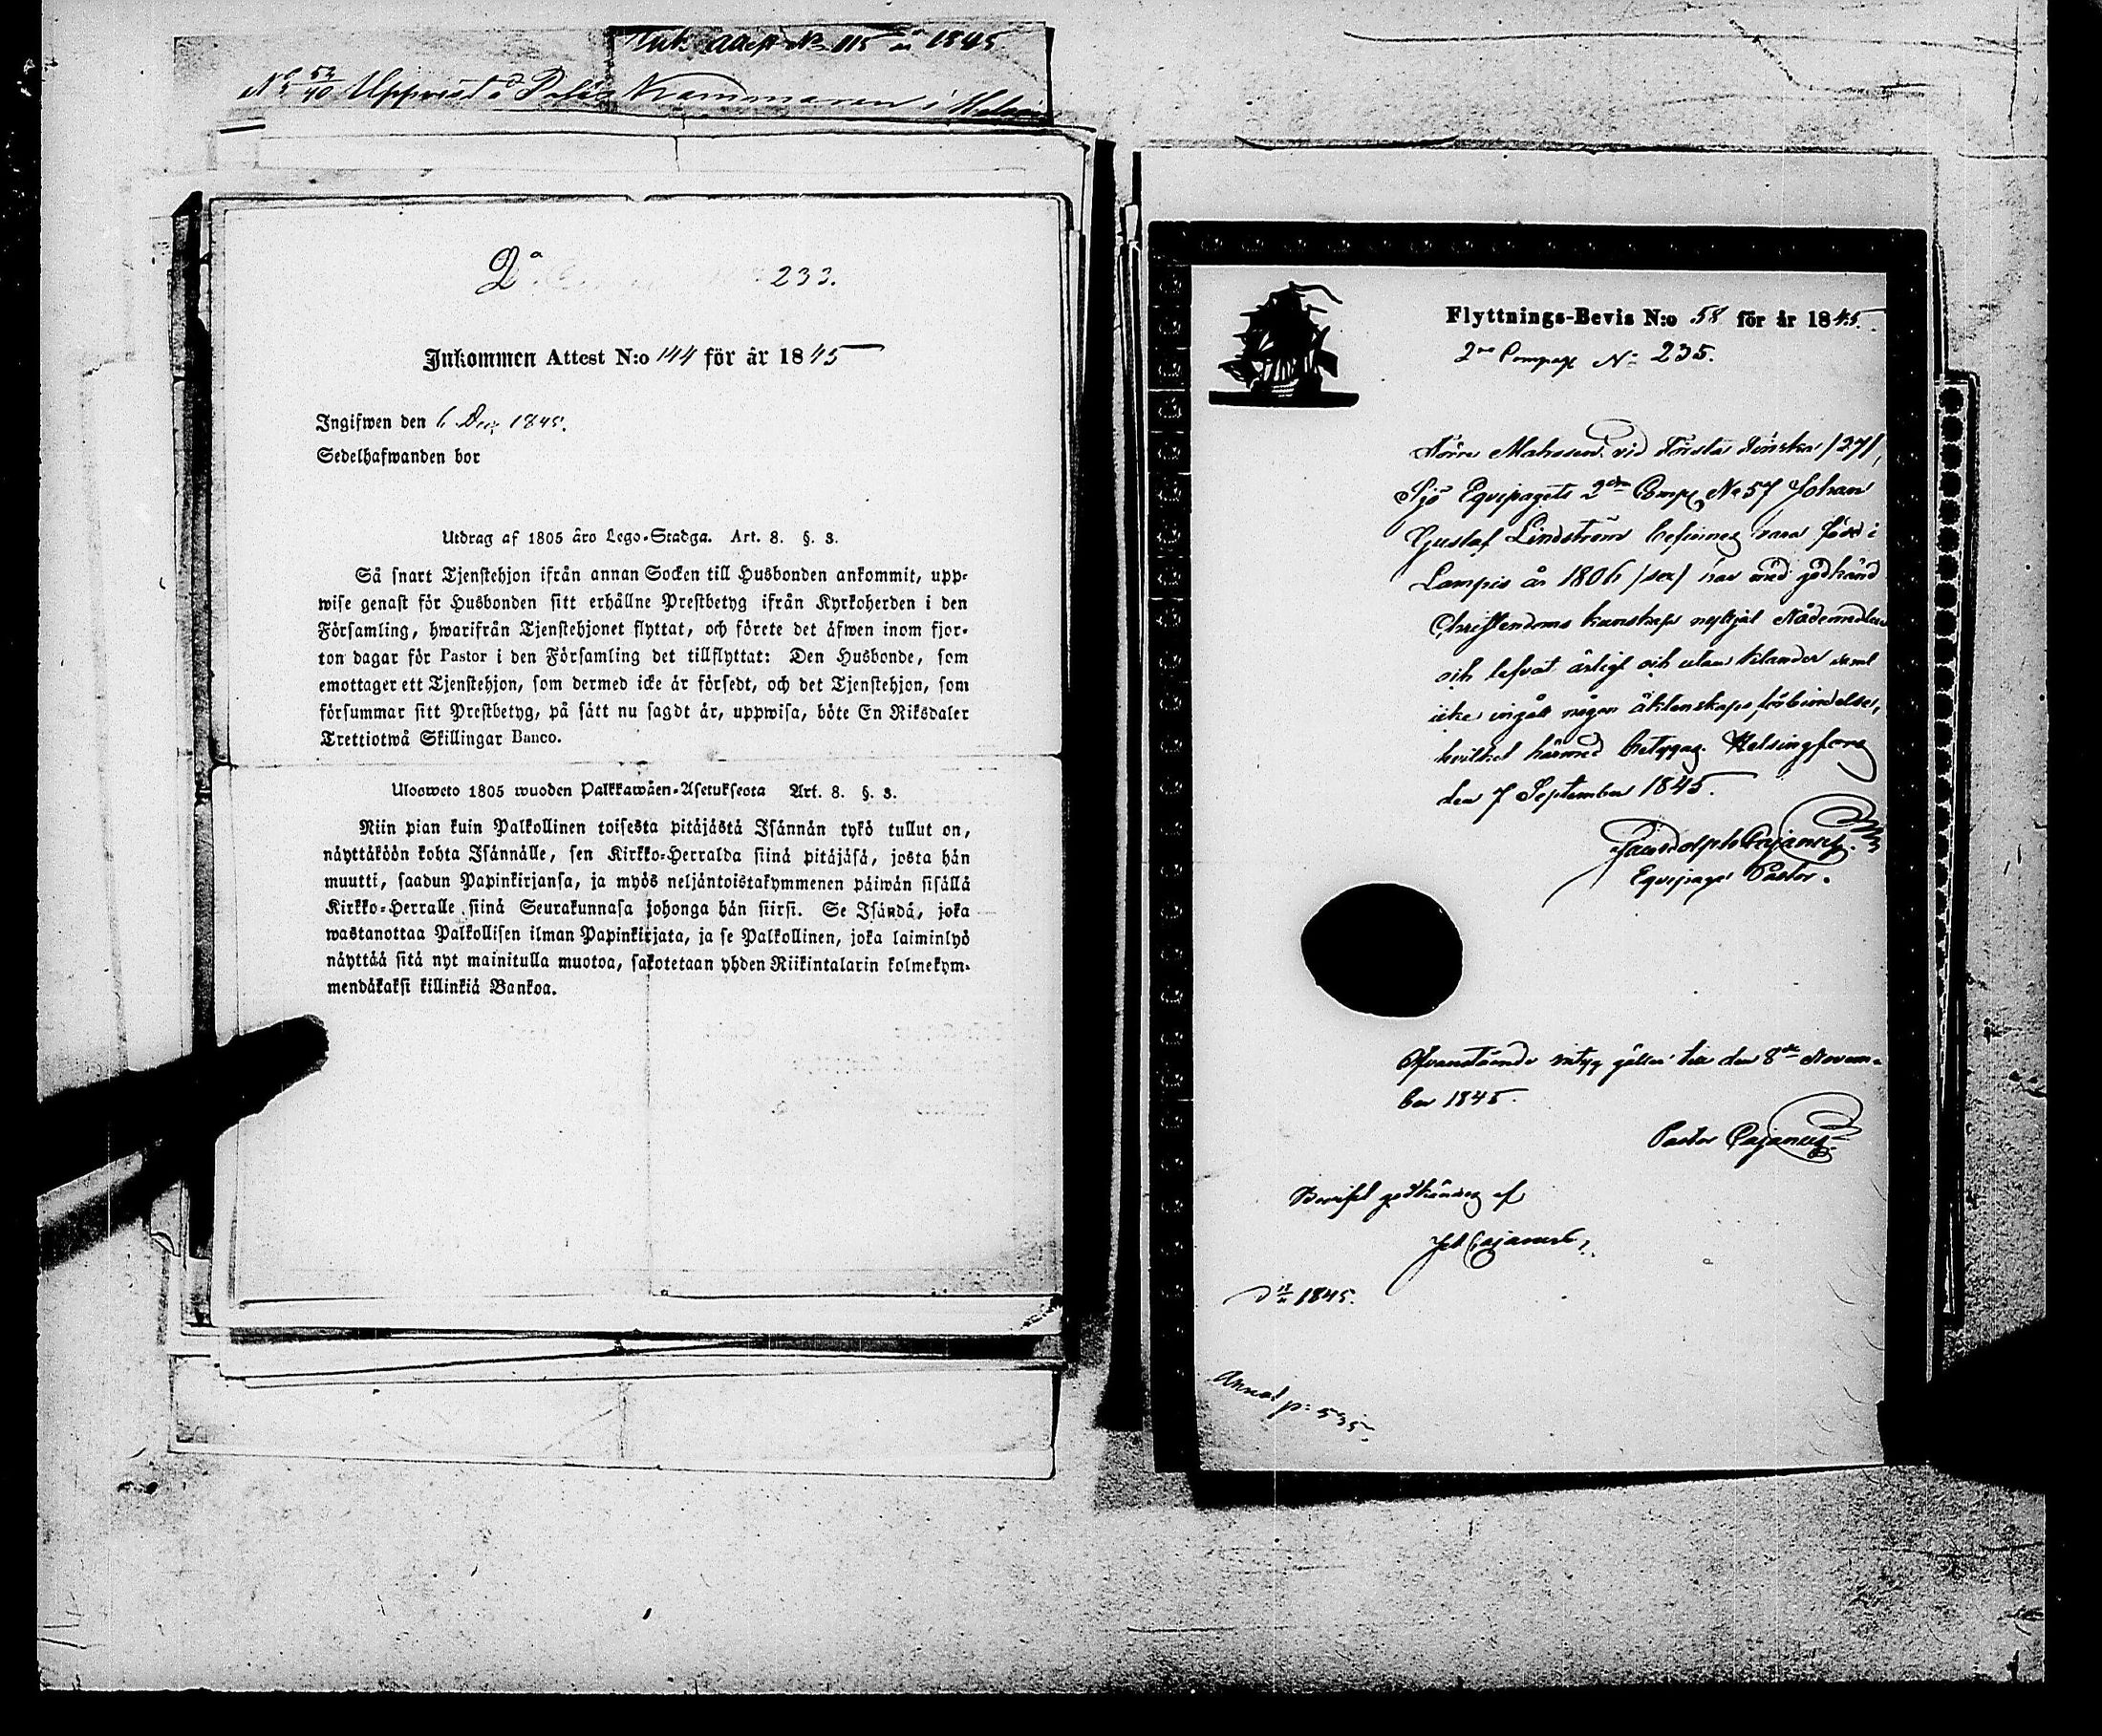 Ink. Attest No 115 år 1845
No 52/40 Uppvist å Polis Kammaren i
233.
Inkommen Attest N:o 144 för år 1845
Ingifwen den 6 Dec. 1845.
Sedelhafwanden bor
Utdrag af 1805 års Lego-Stadga. Art. 8. §. 3.
Så snart Tjenstehjon ifrån annan Socken till Husbonden ankommit, upp-
wise genast för Husbonden sitt erhållne Prestbetyg ifrån Kyrkoherden i den
Församling, hwarifrån Tjenstehjonet flyttat, och förete det äfwen inom fjor-
ton dagar för Pastor i den Församling det tillflyttat: Den Husbonde, som
emottager ett Tjenstehjon, som dermed icke är försedt, och det Tjenstehjon, som
försummar sitt Prestbetyg, på sätt nu sagdt är, uppwisa, böte En Riksdaler
Trettiotwå Skillingar Banco.
Ulosweto 1805 wuoden Palkkawäen-Asetuksesta Art. 8. §. 3.
Niin pian kuin Palkollinen toisesta pitäjästä Isännän tykö tullut on,
näyttäköön kohta Isännälle, sen Kirkko-Herralda siinä pitäjäsä, josta hän
muutti, saadun Papinkirjansa, ja myös neljäntoistakymmenen päiwän sisällä
Kirkko-Herralle siinä Seurakunnasa johonga hän siirsi. Se Isändä, joka
wastanottaa Palkollisen ilman Papinkirjata, ja se Palkollinen, joka laiminlyö
näyttää sitä nyt mainitulla muotoa, sakotetaan yhden Riikintalarin kolmekym-
mendäkaksi killinkiä Bankoa.
Flyttnings-Bevis N:o 58 för år 1845.
2:dra Compag No 235.
Förre Matrosen vid Första Finska /27/,
Sjö Equipagets 2dra Comp. No 57 Johan
Gustaf Lindström befinnes vara född i
Lampis år 1806 /sex/ har med godkänd
Christendoms kunskap nyttjat Nådemedlen
och lefvat ärligt och utan klander samt
icke ingått någon äktenskapsförbindelse,
hvilket härmed betygas. Helsingfors
den 7 September 1845.
Cajanus.
Equipage Pastor.
Ofvanstående intyg gäller till den 8de Novem-
ber 1845.
Pastor Cajanus
Beviset godkännes af
Cajanus.
1845.
p: 535.